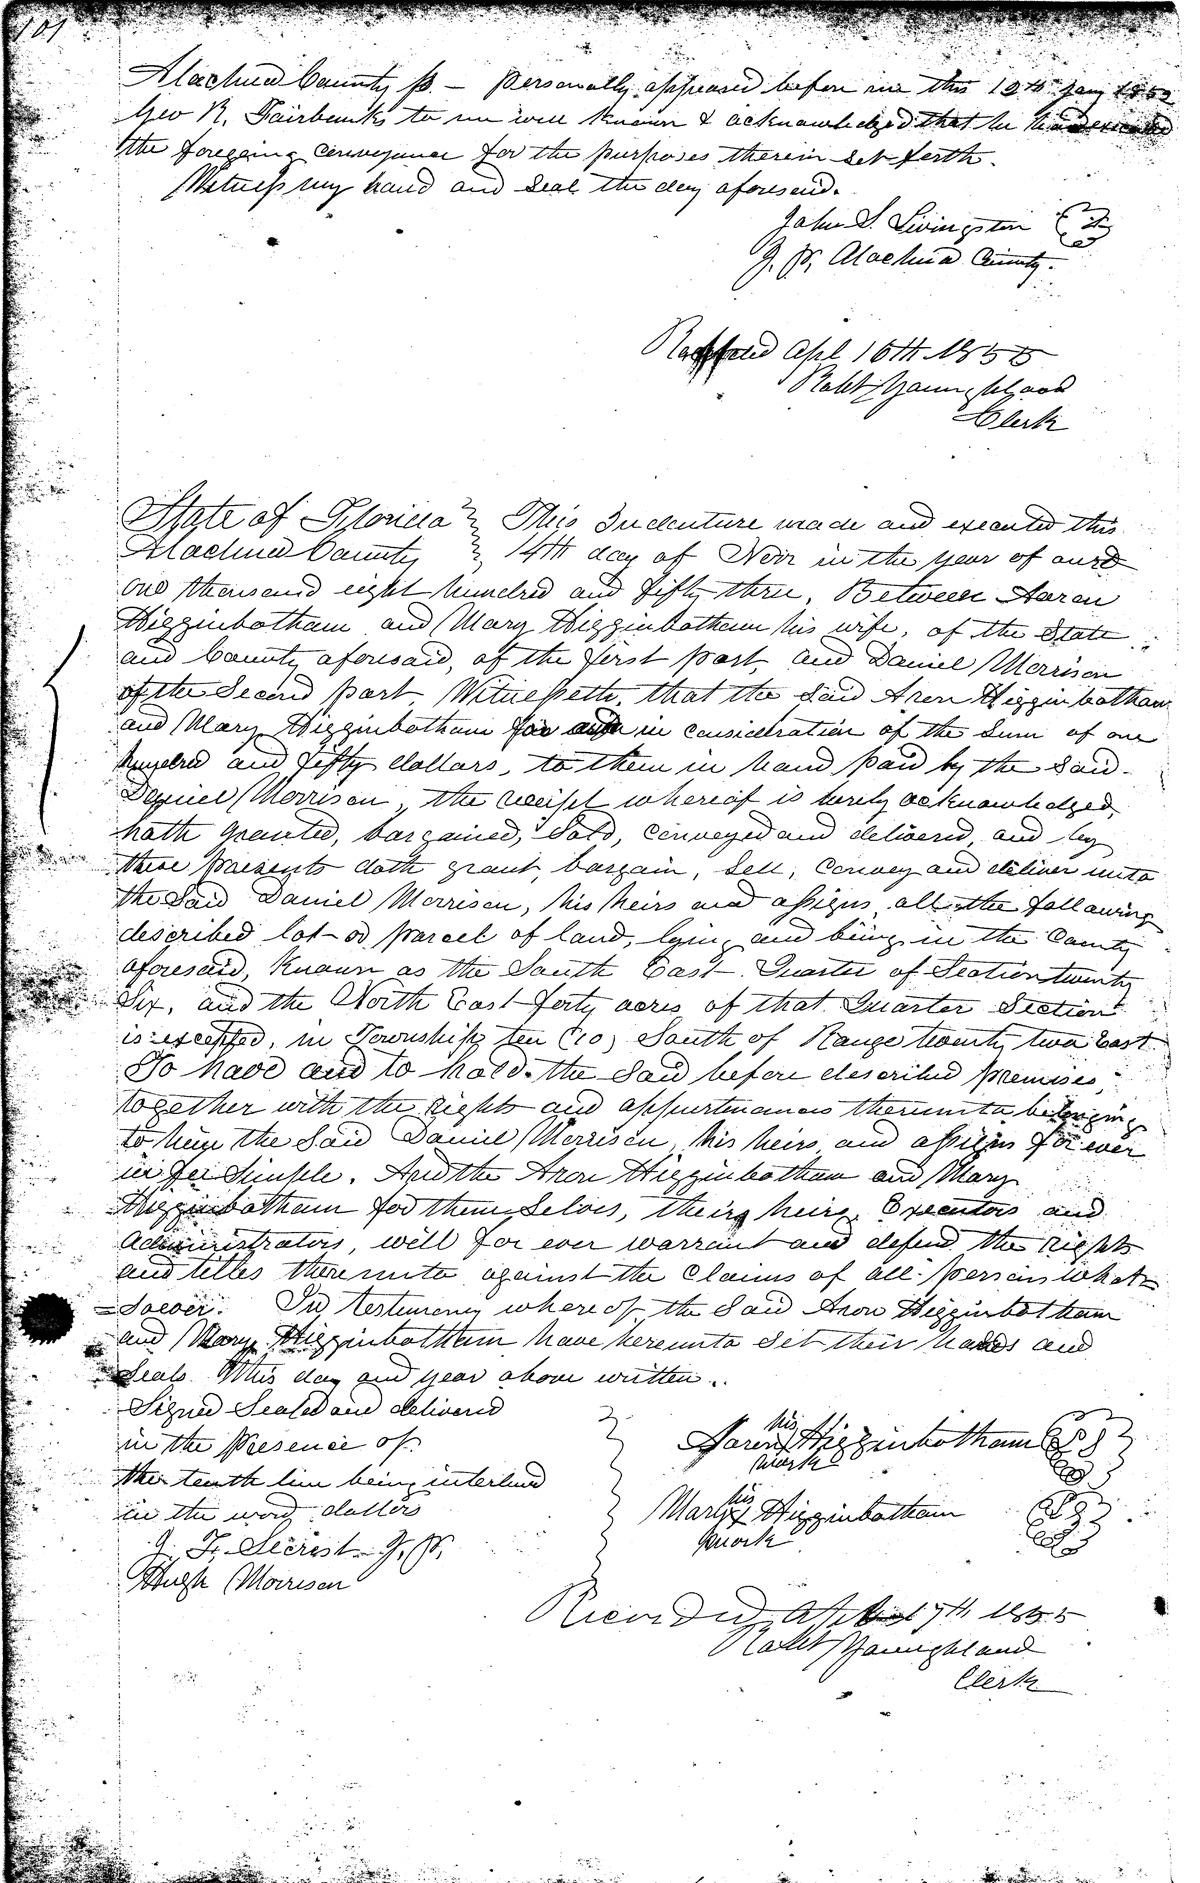 101
Alachua County ss. – Personally appeared before me this 12th Jany
Geo R. Fairbanks to me well known & acknowledged that he had executed
the foregoing conveyance for the purposes therein set forth.
Witness my hand and seal the day aforesaid.
John S. Livingston
J. P. Alachua County.
Recorded Apl 16th 1855
Robt Youngblood
Clerk
State of Florida } This Indenture made and executed this
Alachua County } 14th day of Novr in the year of our
one thousand eight hundred and fifty three, Between Aaron
Higginbotham and Mary Higginbotham his wife, of the State
and County aforesaid, of the first part, and Daniel Morrison
of the Second part, Witnesseth, that the Said Aron Higginbotham
and Mary Higginbotham for and in consideration of the Sum of one
hundred and fifty dollars, to them in hand paid by the Said
Daniel Morrison, the receipt whereof is hereby acknowledged,
hath granted, bargained, Sold, conveyed and delivered, and by
these presents doth grant, bargain, Sell, convey and deliver unto
the Said Daniel Morrison, his heirs and assigns all the following
described lot or parcel of land, lying and being in the County
aforesaid, Known as the South East Quarter of Section twenty
Six, and the North East forty acres of that Quarter Section
is excepted, in Township ten (10) South of Range twenty two East
To have and to hold the Said before described premises,
together with the rights and appurtenances thereunto belonging
to him the Said Daniel Morrison, his heirs and assigns for ever
in fee Simple. And the Aron Higginbotham and Mary
Higginbotham for them Selves, their heirs, Executors and
Administrators, will for ever warrant and defend the rights
and titles thereunto against the Claims of all persons what=
=Soever. In testimony whereof the Said Aron Higginbotham
and Mary Higginbotham have hereunto Set their hands and
Seals this day and year above written.
Signed Sealed and delivered
in the Presence of
the tenth line being interlined
in the word dollars
J. F. Secrest J. P.
Hugh Morrison
his
Aaron X Higginbotham
mark
his
Mary X Higginbotham
mark
Recorded April 17th 1855
Robt Youngblood
Clerk